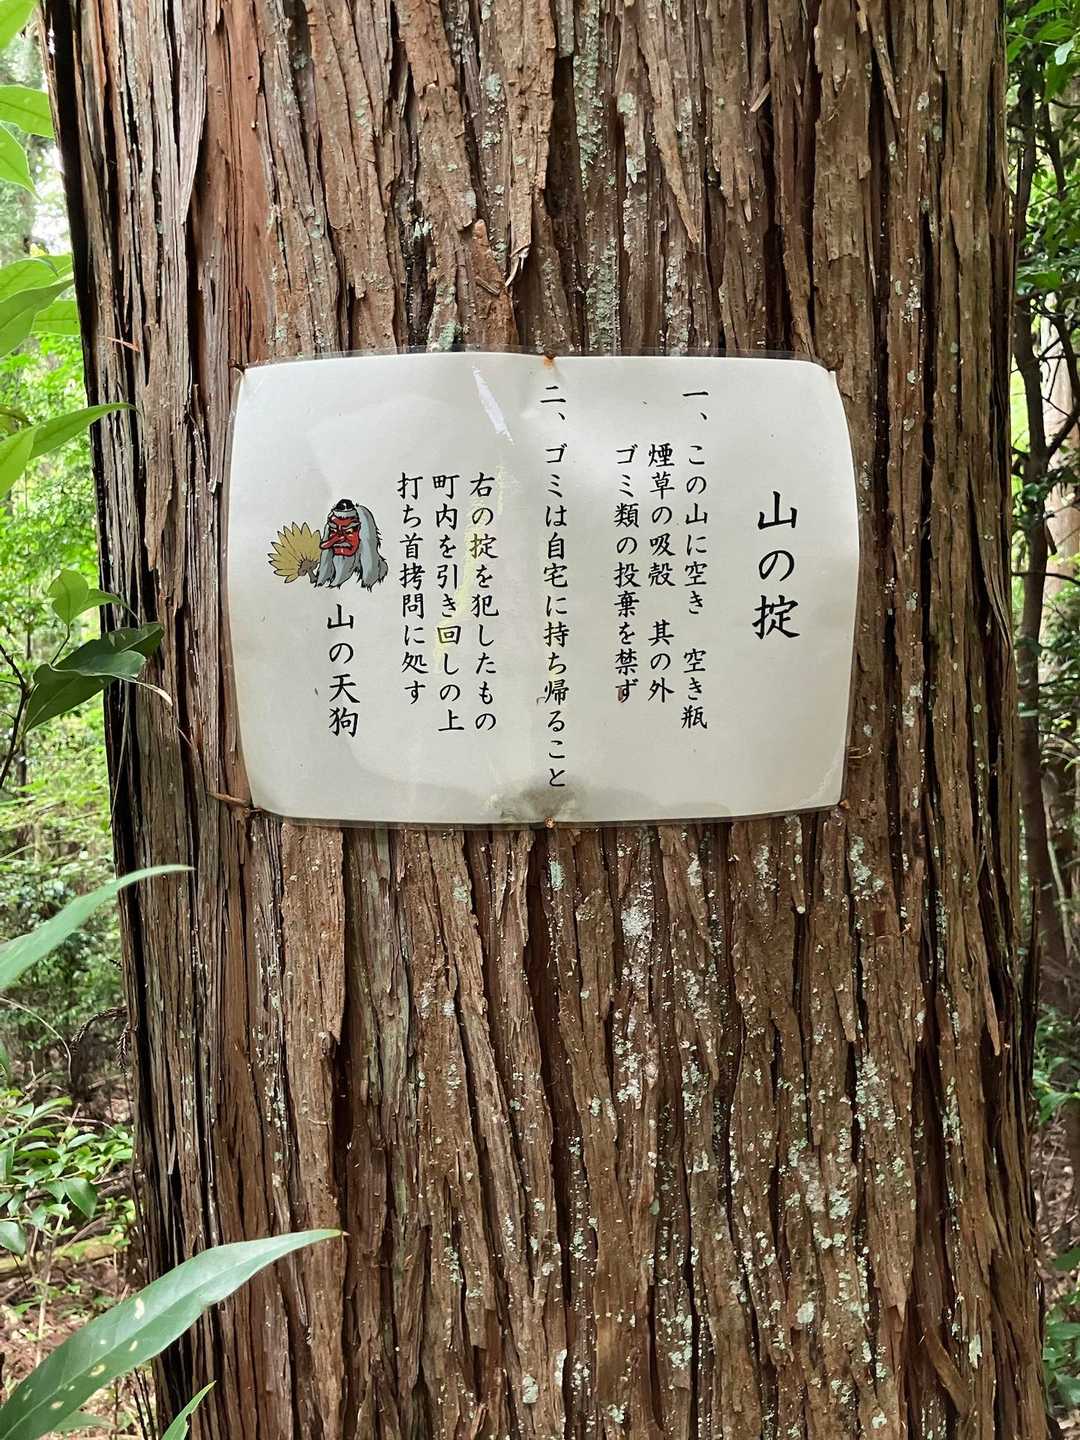 山の掟
一、この山に空き　空き瓶
煙草の吸殻　其の外
ゴミ類の投棄を禁ず
二、ゴミは自宅に持ち帰ること
右の掟を犯したもの
町内を引き回しの上
打ち首拷問に処す
山の天狗